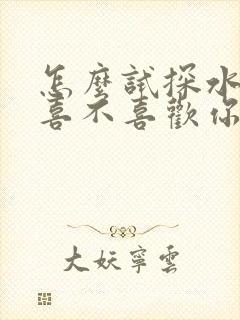 怎麼試探水
喜不喜歡你
大妖寧雲